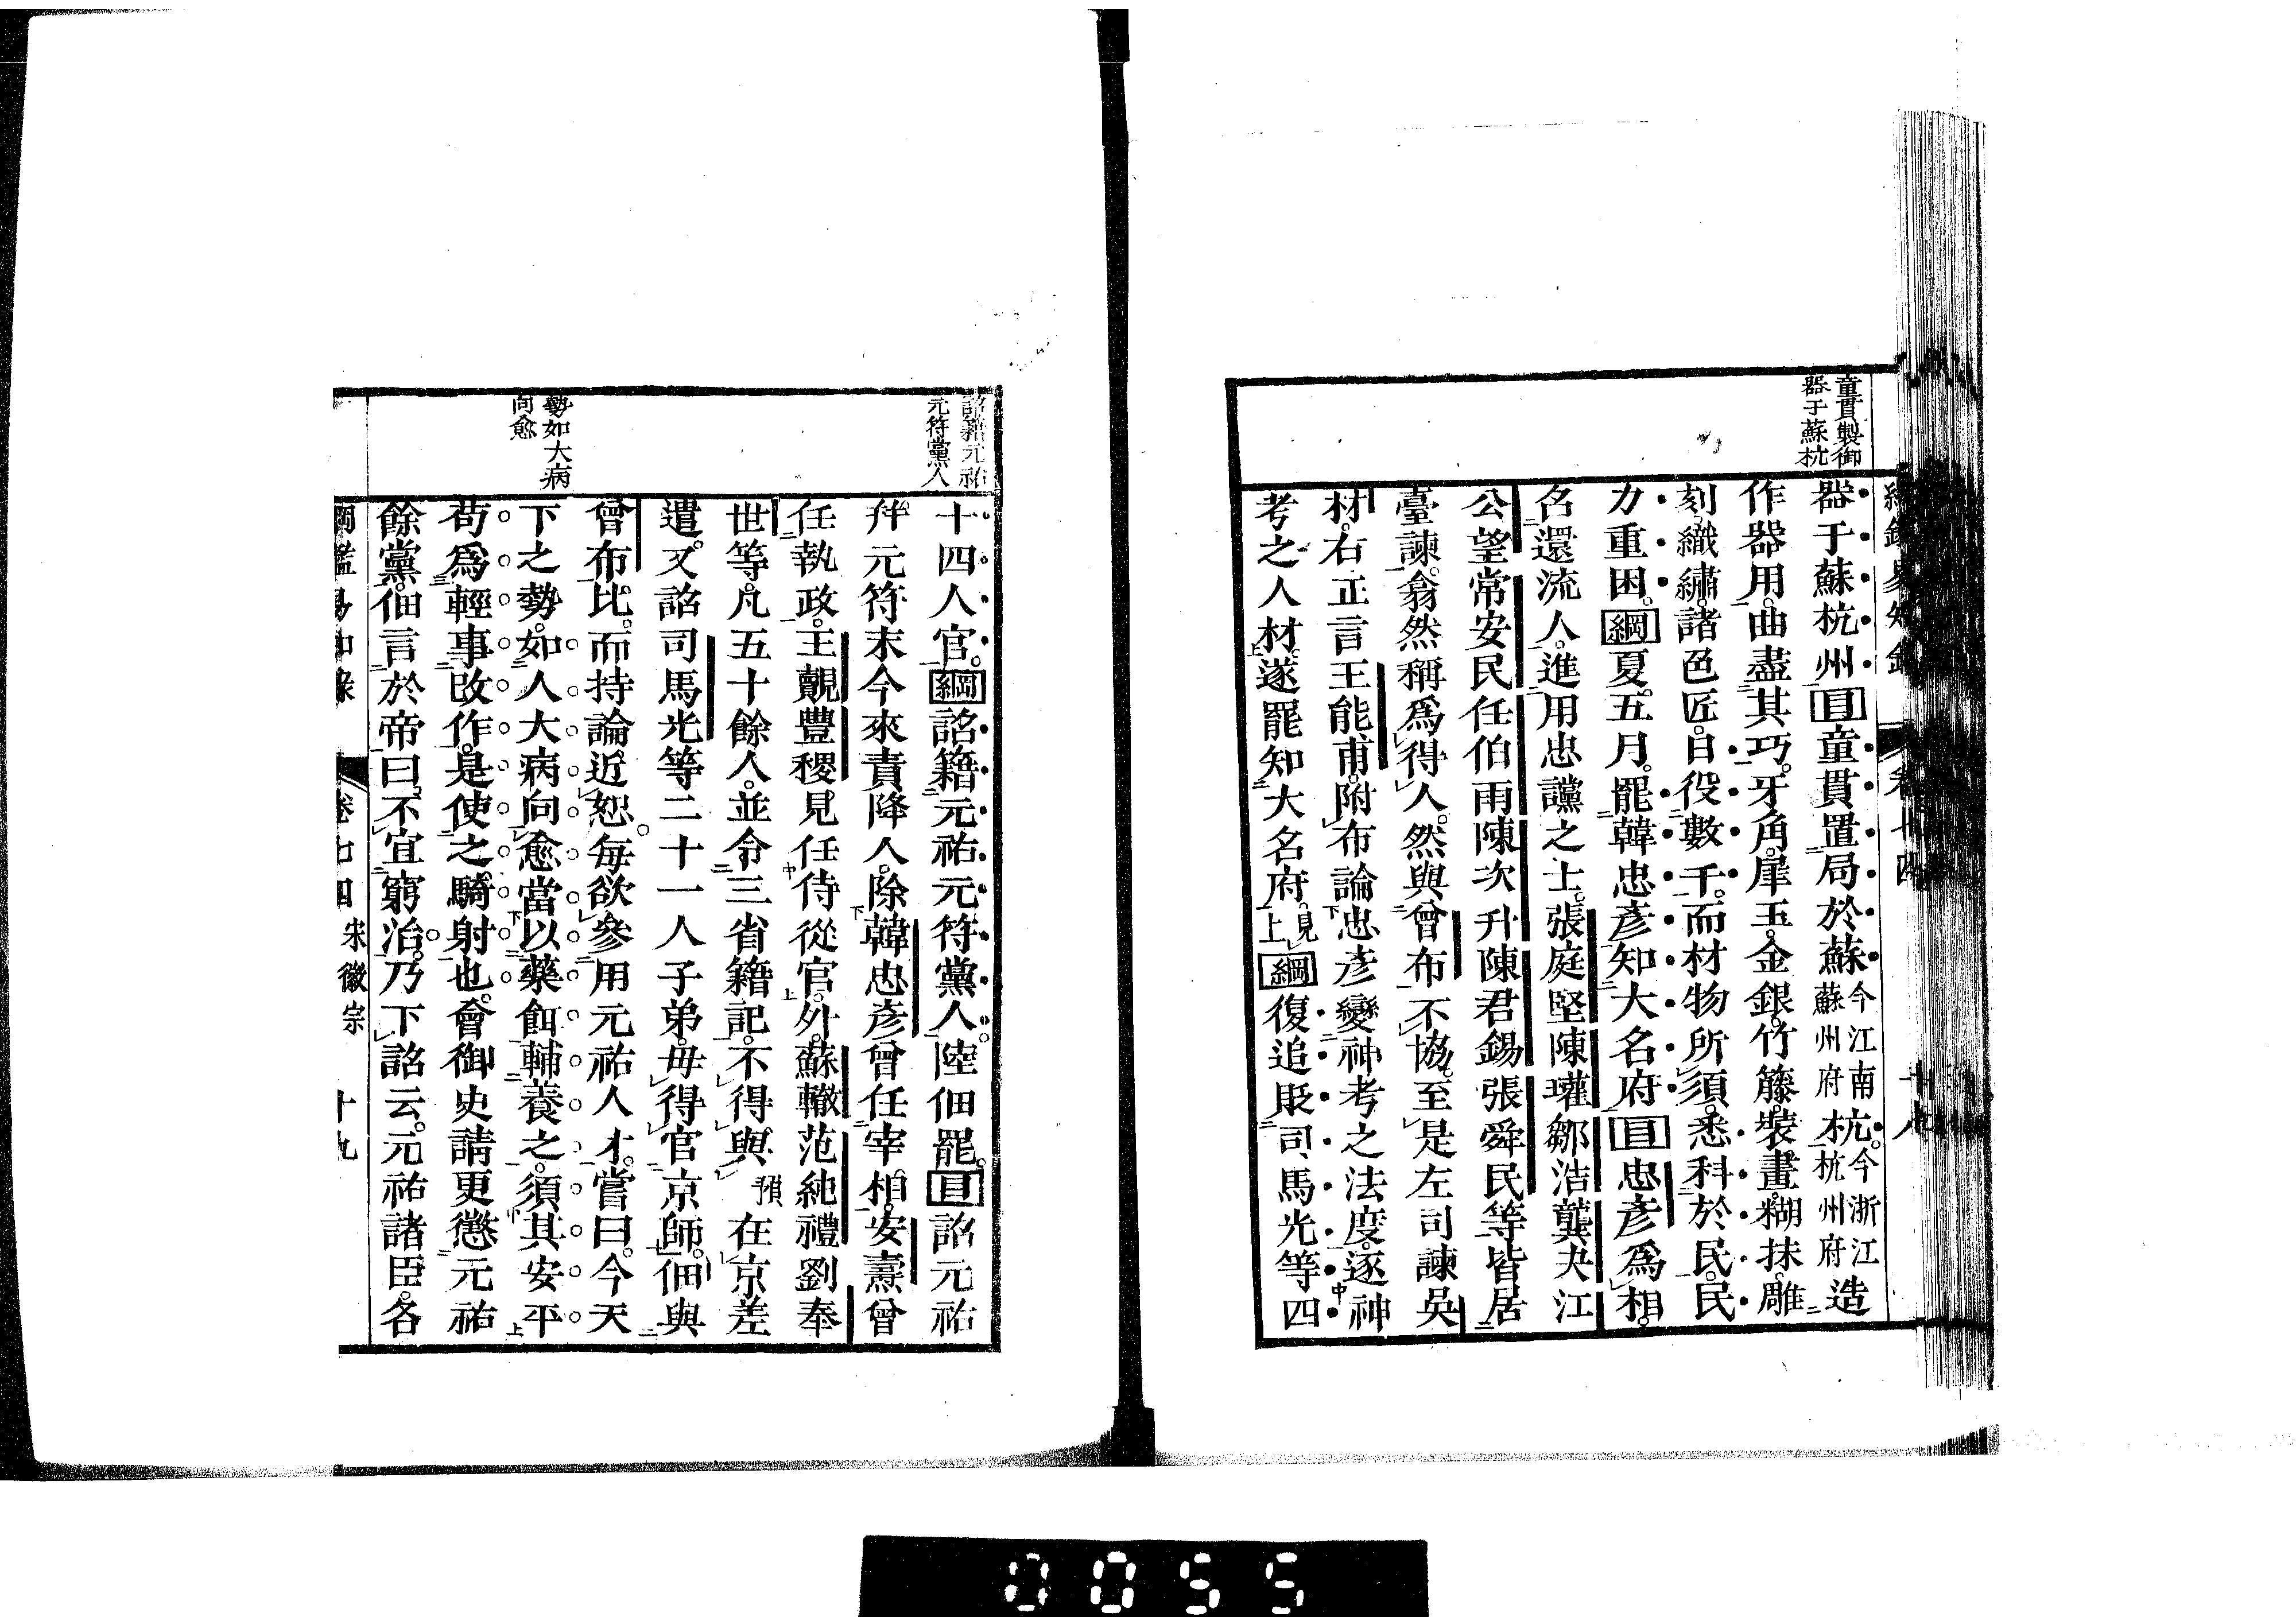 童貫製御
器于蘇杭
器于蘇杭州目童貫置局於蘇今江南蘇州府杭今浙江杭州府造
作器用曲盡其巧牙角犀玉金銀竹籐裝畫糊抹雕
刻織繡諸色匠日役數千而材物所須悉科於民民
力重困綱夏五月罷韓忠彥知大名府目忠彥爲相
召還流人進用忠讜之士張庭堅陳瓘鄒浩龔夬江
公望常安民任伯雨陳次升陳君錫張舜民等皆居
臺諫翕然稱爲得人然與曾布不協至是左司諫吳
材右正言王能甫附布論忠彥變神考之法度逐神
考之人材遂罷知大名府見上綱復追貶司馬光等四
詔籍元祐
元符黨人
勢如大病
向愈
十四人官綱詔籍元祐元符黨人陸佃罷目詔元祐
幷元符末今來責降人除韓忠彥曾任宰相安燾曾
任執政王覿豐稷見任侍從官外蘇轍范純禮劉奉
世等凡五十餘人並令三省籍記不得與預在京差
遣又詔司馬光等二十一人子弟毋得官京師佃與
曾布比而持論近恕每欲參用元祐人才嘗曰今天
下之勢如人大病向愈當以藥餌輔養之須其安平
苟爲輕事改作是使之騎射也會御史請更懲元祐
餘黨佃言於帝曰不宜窮治乃下詔云元祐諸臣各
綱鑑易知錄 卷七四 宋徽宗 十九
0055